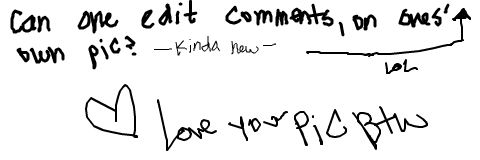 Can one edit comments, on ones'
own pic? -Kinda new-
LOL
Love your pic Btw